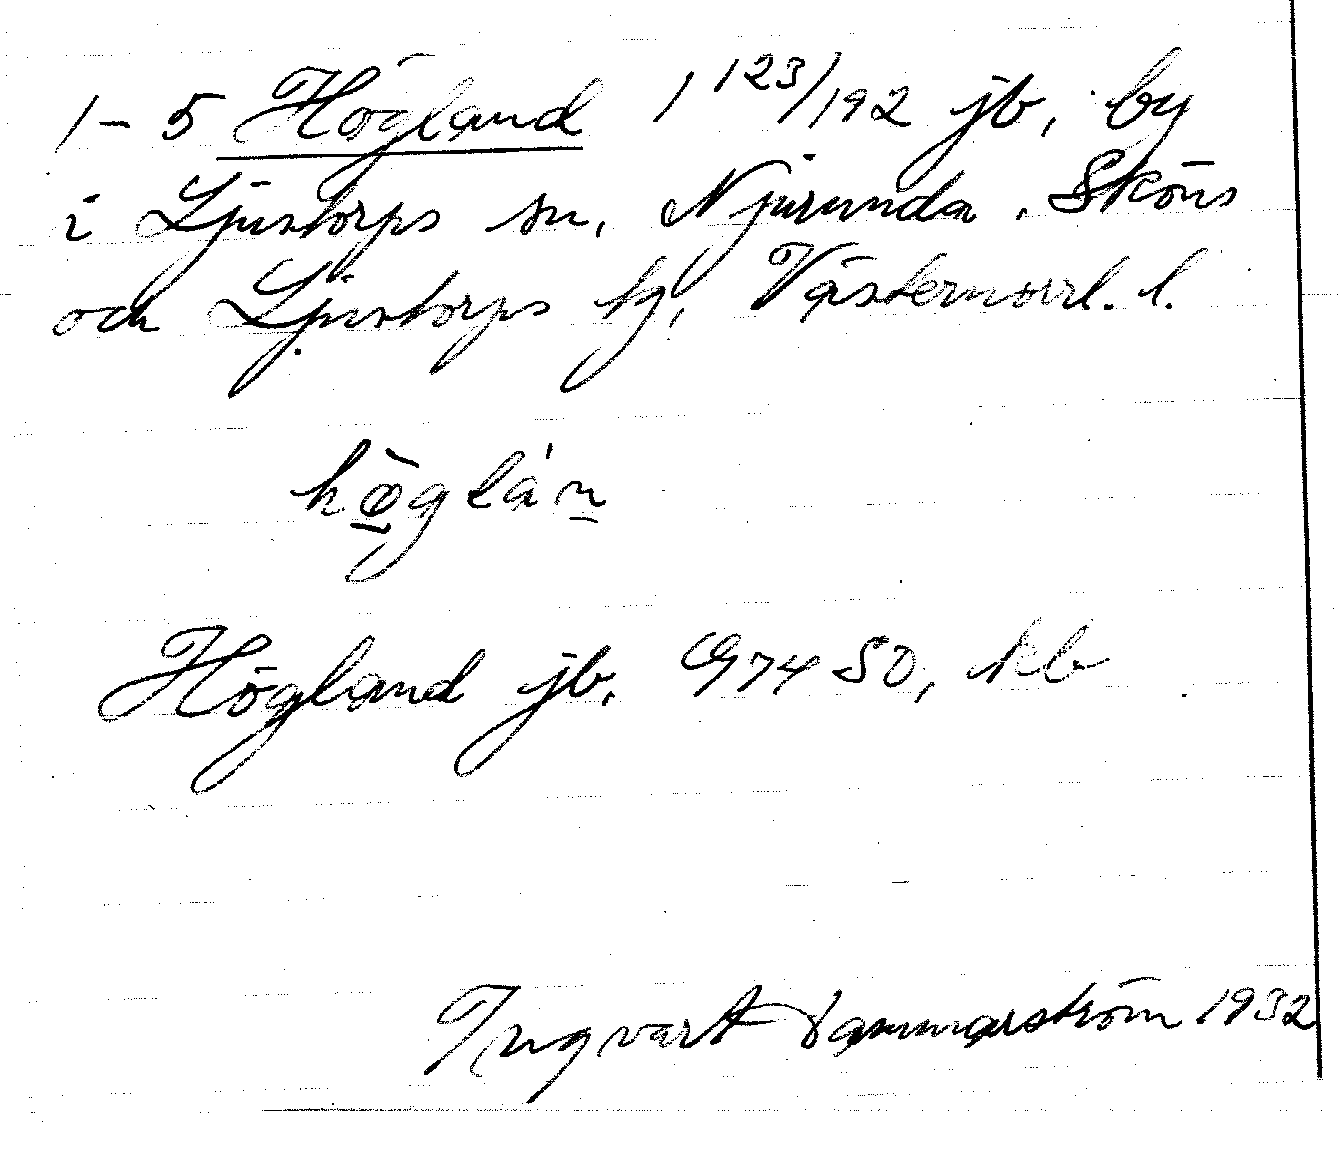 1-5 Högland 1 123/192 jb, by
i Ljustorps sn, Njurunda, Sköns
och Ljustorps tg, Västernorrl. l.
hø̱̀glán̲
Högland jb. G74 SO, kb
Ingvart Hammarström 1932